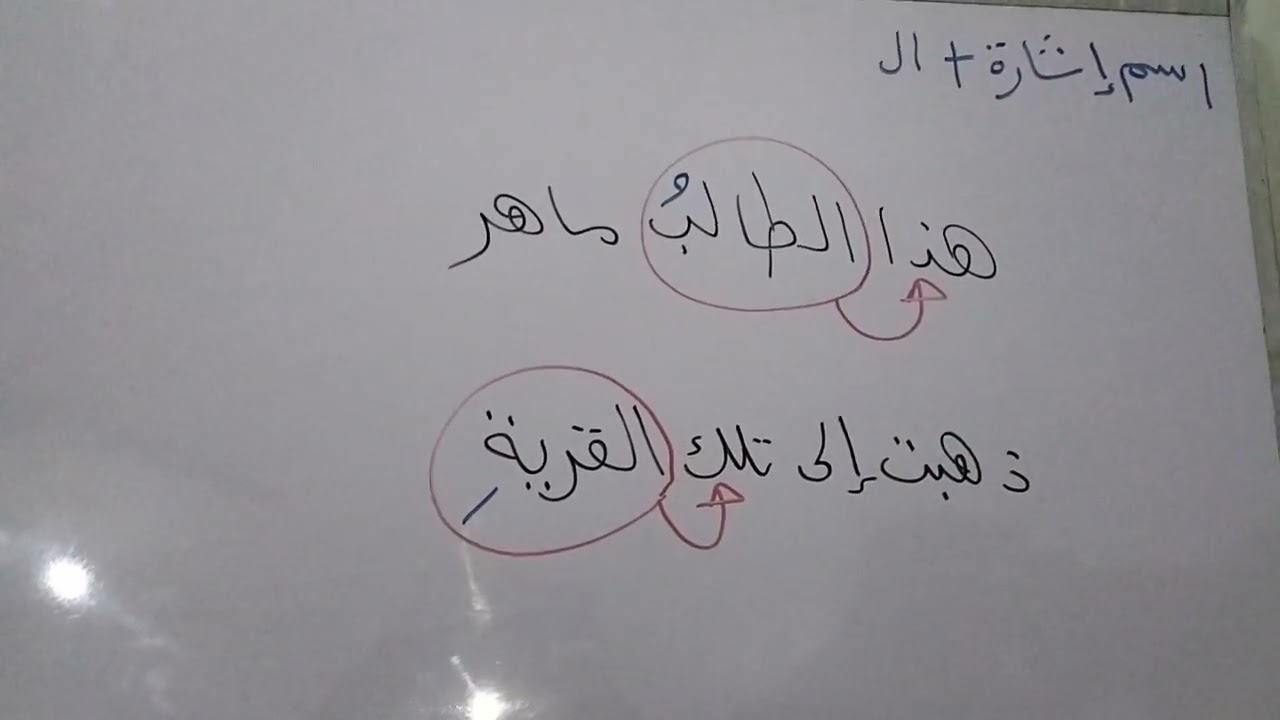 اسم إشارة + ال
هذا الطالبُ ماهر
ذهبت إلى تلك القريةِ